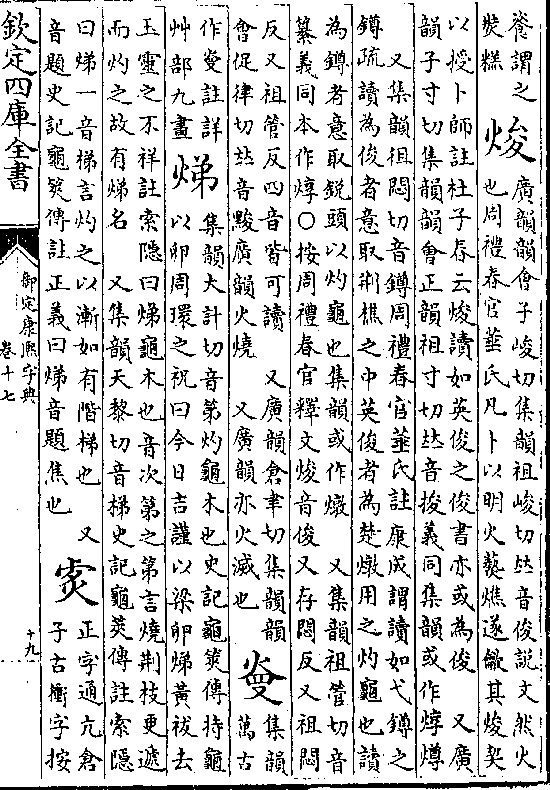 欽定四庫全書
御定康熙字典
卷十七
十九
餋謂之
糕
焌
廣韻韻會子峻切集韻祖峻切𠀤音俊説文然火
也周禮春官菙氏凡卜以明火爇燋遂龡其焌契
以授卜師註杜子春云焌讀如英俊之俊書亦或為俊 又廣
韻子寸切集韻韻會正韻祖寸切𠀤音捘義同集韻或作焞燇
又集韻祖悶切音鐏周禮春官菙氏註康成謂讀如戈鐏之
鐏疏讀為俊者意取荆樵之中英俊者為楚燉用之灼龜也讀
為鐏者意取鋭頭以灼龜也集韻或作燉 又集韻祖管切音
纂義同本作焞○按周禮春官釋文焌音俊又存悶反又祖悶
反又祖管反四音皆可讀 又廣韻倉聿切集韻韻
會促律切𠀤音黢廣韻火燒 又廣韻亦火滅也
集韻
萬古
作 註詳
艸部九畫
焍
集韻大計切音第灼龜木也史記龜筴傳持龜
以卵周環之祝曰今日吉謹以梁卵焍黄祓去
玉靈之不祥註索隱曰焍龜木也音次第之第言燒荆枝更遞
而灼之故有焍名 又集韻天黎切音梯史記龜筴傳註索隱
曰焍一音梯言灼之以漸如有階梯也 又
音題史記龜筴傳註正義曰焍音題焦也
正字通亢倉
子古衝字按